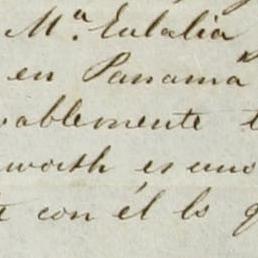 Mª. Eulalia
en Panamá
vablemente t
worth es uno
con él lo q